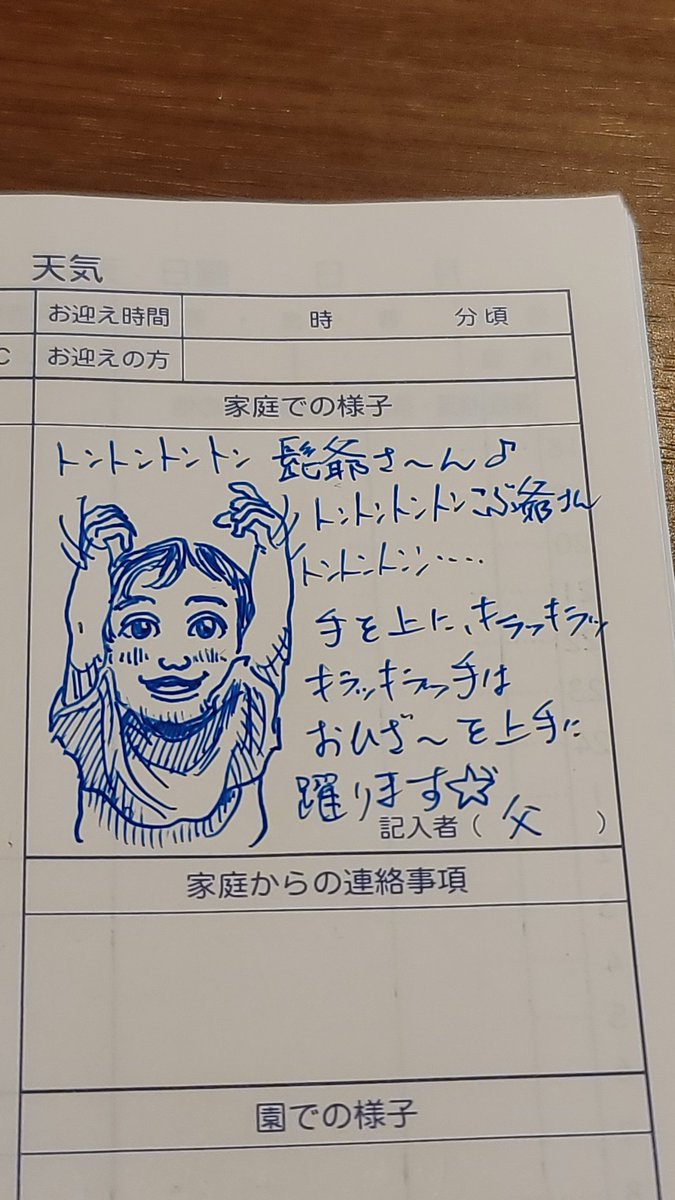 天気
お迎え時間 時 分頃
C お迎えの方
家庭での様子
トントントントン 髭爺さ〜ん♪
トントントントン こぶ爺さん
トントントントン‥‥
手を上に、キラッキラッ
キラッキラッ手は
おひざ〜を上手に
躍ります☆
記入者（ 父 ）
家庭からの連絡事項
園での様子